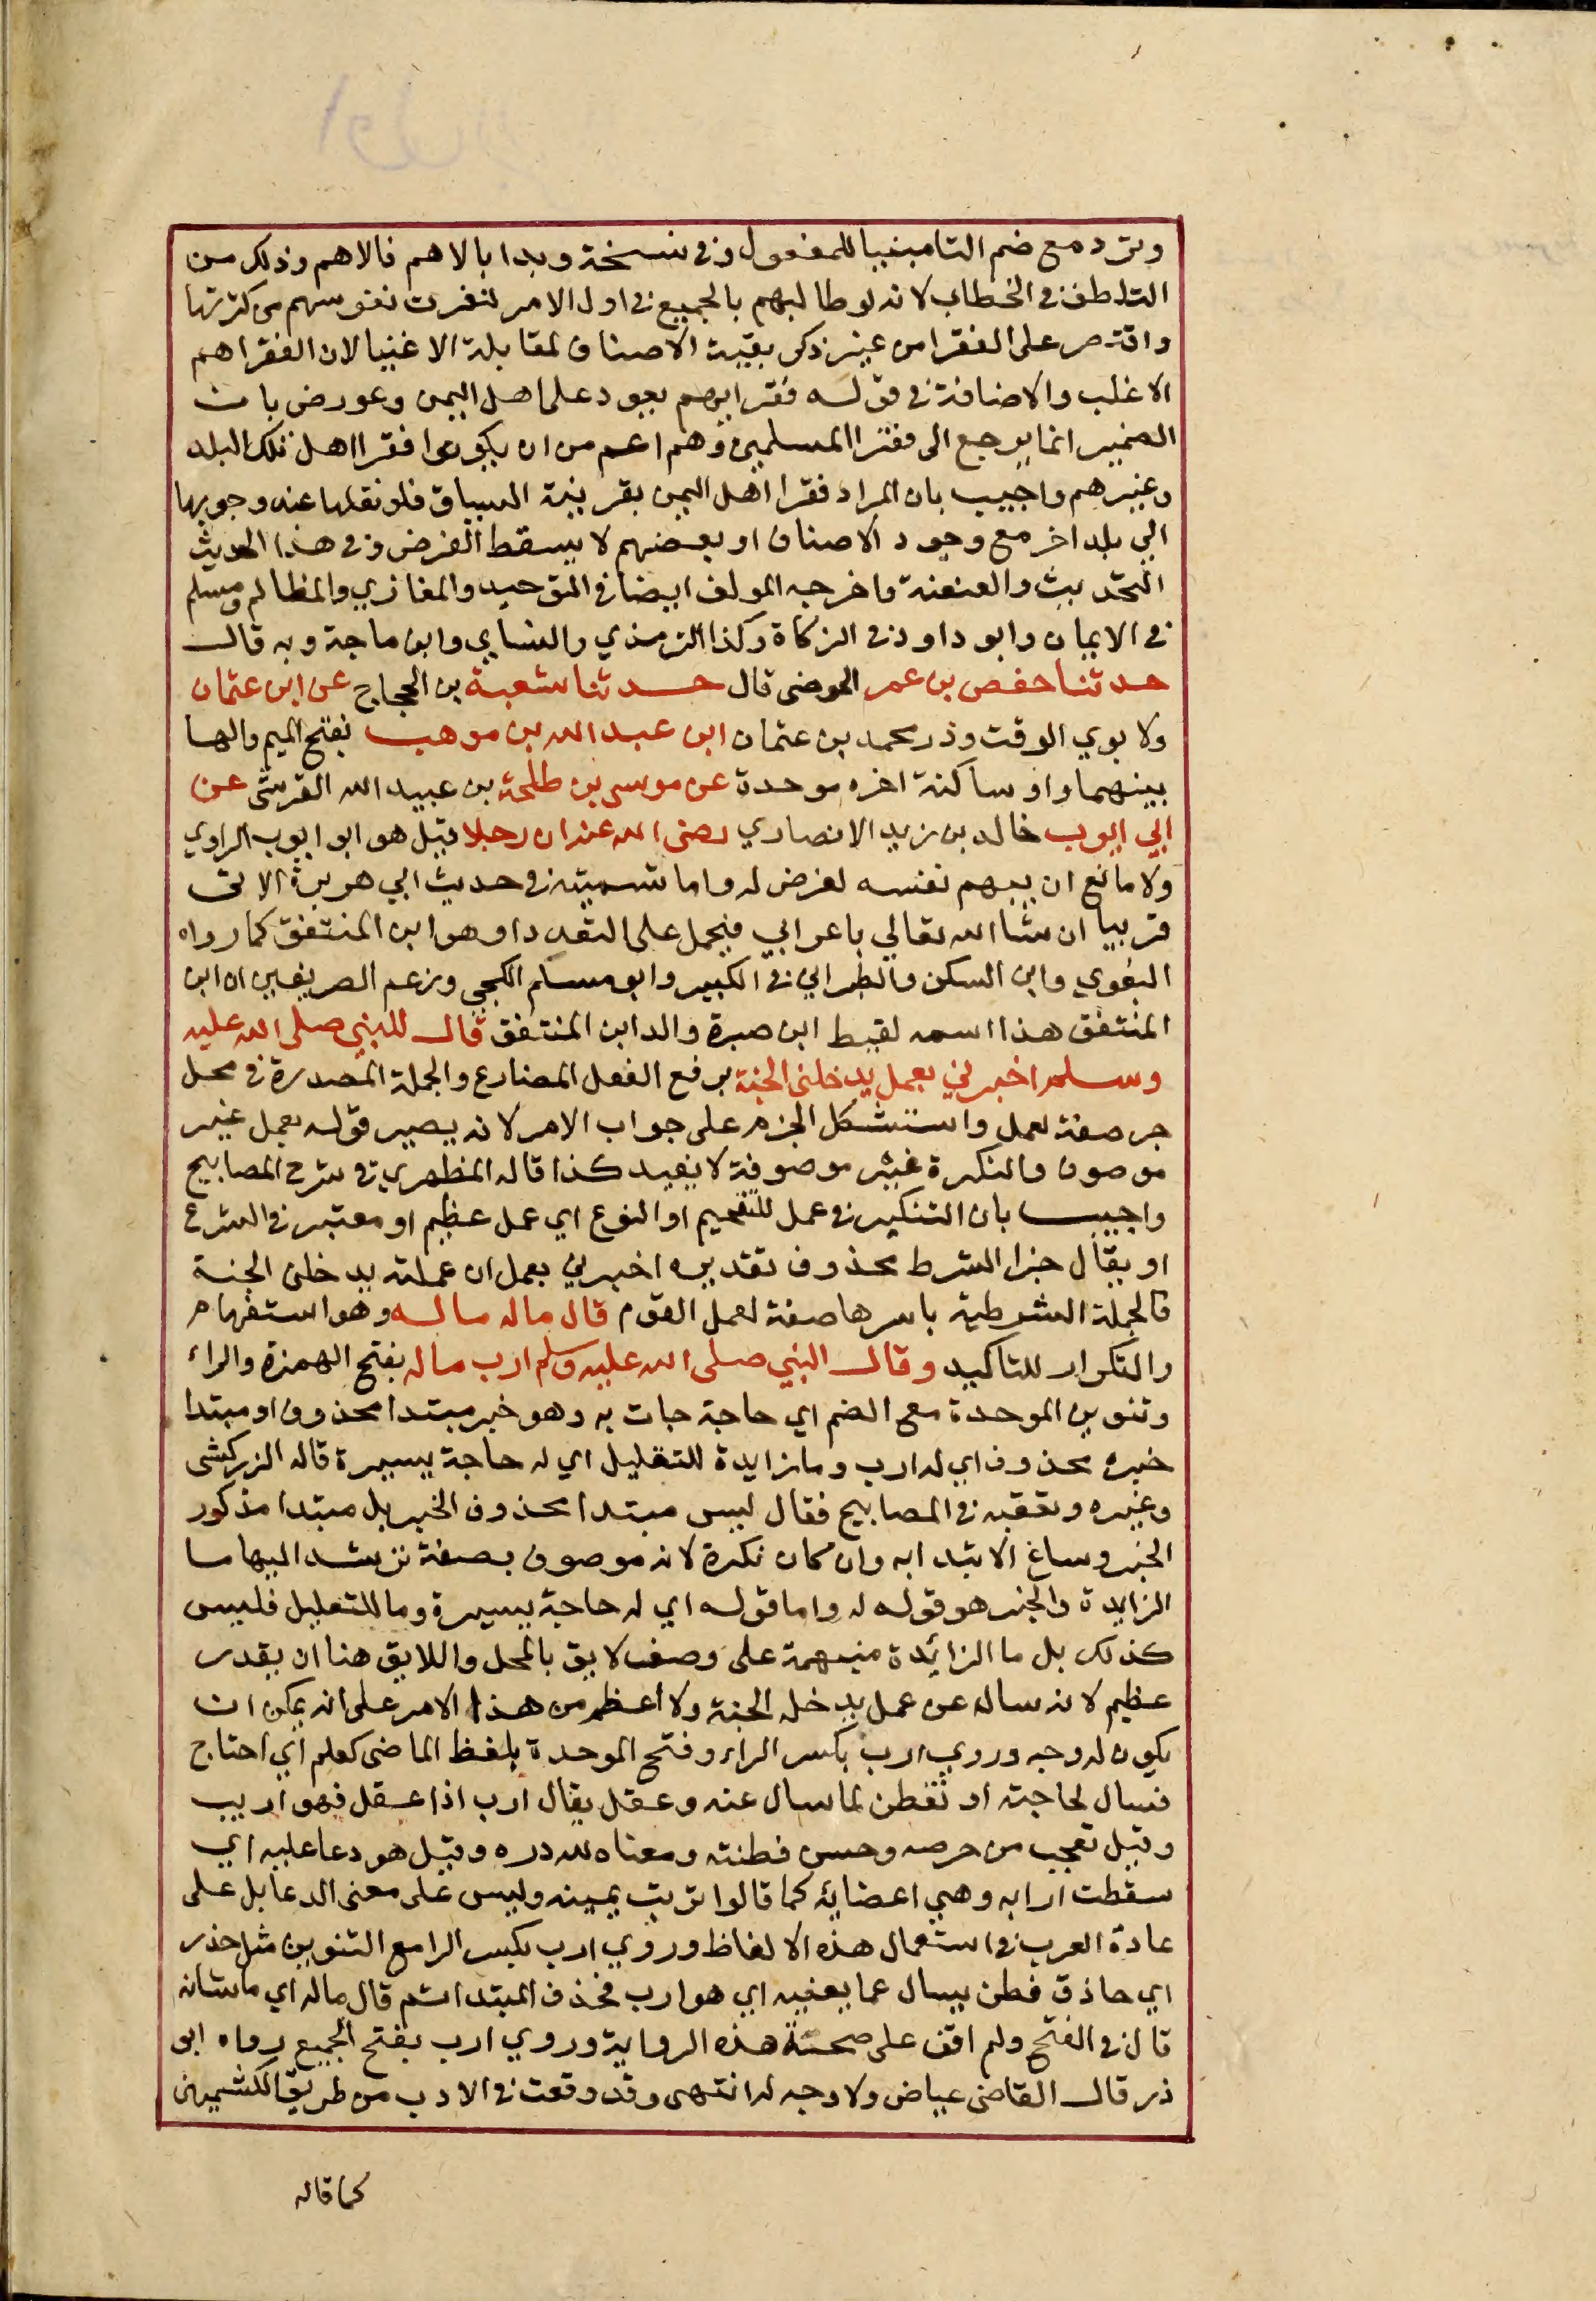 وترد مع ضم التا مبنيا للمفعول وفي نسخة وبدا بالاهم فالاهم وذلك من
التلطف في الخطاب لانه لو طالبهم بالجميع في اول الامر لنفرت نفوسهم من كثرتها
واقتصر على الفقرا من غير ذكر بقية الاصناف لمقابلة الاغنيا لان الفقرا هم
الاغلب والاضافة في قوله فقرايهم يعود على اهل اليمن وعورض بان
الضمير انما يرجع الى فقرا المسلمين وهم اعم من ان يكونوا فقرا اهل تلك البلد
وغيرهم واجيب بان المراد فقرا اهل اليمن بقرينة السياق فلو نقلها عند وجوبها
الي بلد اخر مع وجود الاصناف او بعضهم لا يسقط الفرض وفي هذا الحديث
التحديث والعنعنة واخرجه المولف ايضا في التوحيد والمغازي والمظالم ومسلم
في الايمان وابو داود في الزكاة وكذا الترمذي والنساي وابن ماجة وبه قال
حدثنا حفص بن عمر الحوضى قال حدثنا شعبة بن الحجاج عن ابن عثمان
ولا بوي الوقت وذر محمد بن عثمان ابن عبد الله بن موهب بفتح الميم والها
بينهما واو ساكنة اخره موحدة عن موسى بن طلحة بن عبيد الله القرشى عن
ابي ايوب خالد بن زيد الانصاري رضى الله عنه ان رجلا قيل هو ابو ايوب الراوي
ولا مانع ان يبهم نفسه لغرض له واما تسميته في حديث ابي هريرة الاتى
قريبا ان شا الله تعالي باعرابي فيحمل على التعدد او هو ابن المنتفق كما رواه
البغوي وابن السكن والطبراني في الكبير وابو مسلم الكجي وزعم الصريفين ان ابن
المنتفق هذا اسمه لقيط ابن صبرة والد ابن المنتفق قال للنبي صلى الله عليه
وسلم اخبرني بعمل يدخلنى الجنة برفع الفعل المضارع والجملة المصدرة في محل
جر صفة لعمل واستشكل الجزم على جواب الامر لانه يصير قوله بعمل غير
موصوف والنكرة غير موصوفة لا يفيد كذا قاله المظهري في شرح المصابيح
واجيب بان التنكير في عمل للتفخيم او النوع اي عمل عظيم او معتبر في الشرع
او يقال جزا الشرط محذوف تقديره اخبرني بعمل ان عملته يدخلنى الجنة
فالجملة الشرطية باسرها صفة لعمل القوم قال ماله ماله وهو استفهام
والتكرار للتاكيد وقال النبي صلى الله عليه وسلم ارب ماله بفتح الهمزة والراء
وتنوين الموحدة مع الضم اي حاجة جات به وهو خبر مبتدا محذوف او مبتدا
خبره محذوف اي له ارب وما زايدة للتقليل اي له حاجة يسيرة قاله الزركشى
وغيره وتعقبه في المصابيح فقال ليس مبتدا محذوف الخبر بل مبتدا مذكور
الخبر وساغ الابتدا به وان كان نكرة لانه موصوف بصفة ترشد اليها ما
الزايدة والخبر هو قوله له واما قوله اي له حاجة يسيرة وما للتعليل فليس
كذلك بل ما الزائدة منبهمة على وصف لايق بالمحل واللايق هنا ان يقدر
عظيم لانه ساله عن عمل يدخله الجنة ولا اعظم من هذا الامر على انه يمكن ان
يكون له وجه وروي ارب بكسر الراء وفتح الموحدة بلفظ الماضى كعلم اي احتاج
فسال لحاجته او تفطن لما سال عنه وعقل يقال ارب اذا عقل فهو اريب
وقيل تعجب من حرصه وحسن فطنته ومعناه لله دره وقيل هو دعا عليه اي
سقطت ارابه وهي اعضايه كما قالوا تربت يمينه وليس على معنى الدعا بل على
عادة العرب في استعمال هذه الالفاظ وروي ارب بكسر الرا مع التنوين مثل حذر
اي حاذق فطن يسال عما يعنيه اي هو ارب فحذف المبتدا ثم قال ماله اي ماشانه
قال في الفتح ولم اقف على صحة هذه الرواية وروي ارب بفتح الجميع رواه ابو
ذر قال القاضى عياض ولا وجه له انتهى وقد وقعت في الادب من طريق الكشميهنى
كما قاله